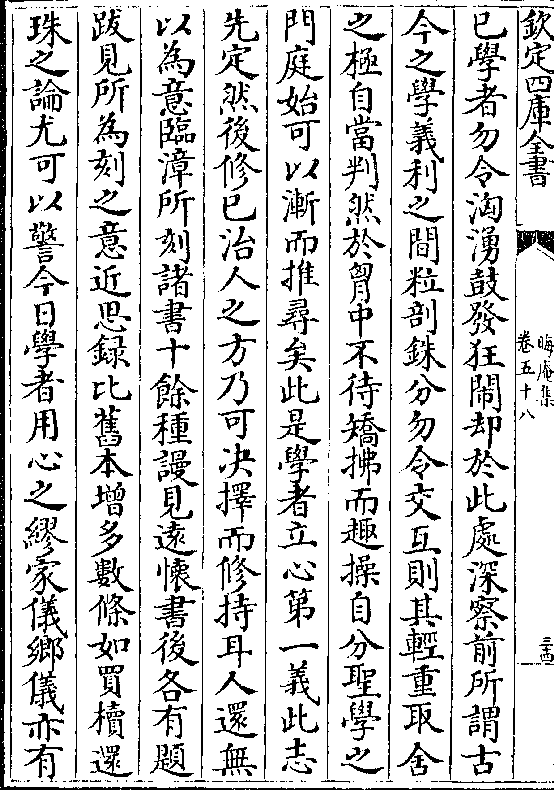 欽定四庫全書
晦庵集
卷五十八
三四
已學者勿令洶湧鼓發狂鬧却於此處深察前所謂古
今之學義利之間粒剖銖分勿令交互則其輕重取舍
之極自當判然於胷中不待矯拂而趣操自分聖學之
門庭始可以漸而推尋矣此是學者立心第一義此志
先定然後修已治人之方乃可决擇而修持耳人還無
以為意臨漳所刻諸書十餘種謾見逺懐書後各有題
跋見所為刻之意近思録比舊本增多數條如買櫝還
珠之論尤可以警今日學者用心之繆家儀鄉儀亦有